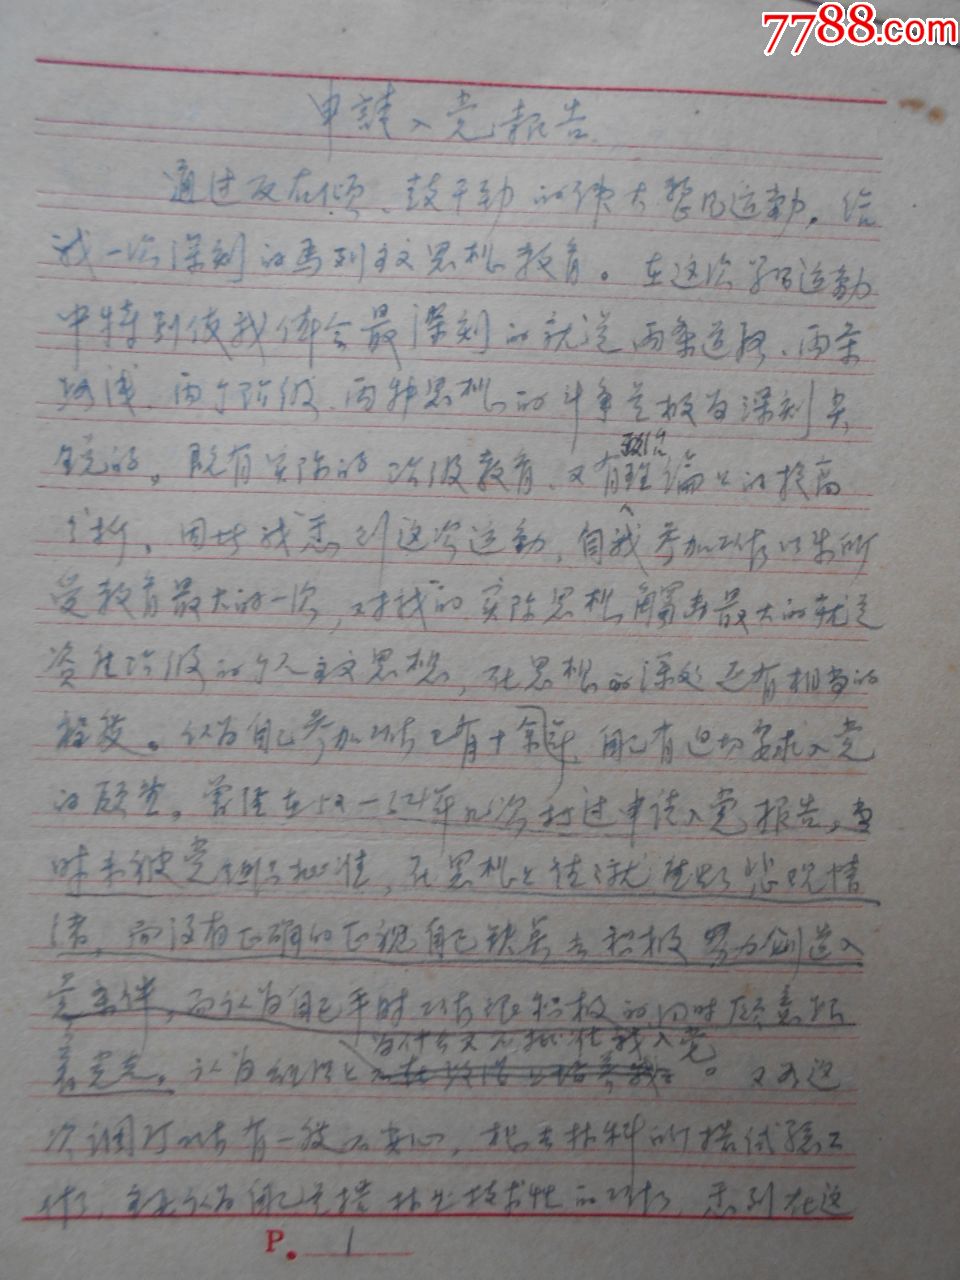 7788.com
申請入党報告
通过反右倾、鼓干劲的伟大整风运动，给
我一次深刻的馬列主义思想教育。在这次学习运动
中特别使我体会最深刻的就是两条道路、两条
路线、两个阶级、两种思想的斗争是极为深刻尖
锐的。既有实际的阶级教育、又有政治理論上的提高
分析。因此我感到这次运动，自我参加工作以来所
受教育最大的一次，对我的实际思想触动最大的就是
资产阶级的个人主义思想，在思想的深处还有相当的
程度。认为自己参加工作已有十余年，自己有迫切要求入党
的愿望。曾经在52—54年几次打过申请入党报告，当
时未被党组织批准，在思想上就产生悲观情
绪，而没有正确的正视自己缺点去积极努力创造入
党条件，而认为自己平时工作很积极的同时愿意听
为什么又不批准我入党。
认为组织上 又如这
次调动工作有一段不安心，想去林科所搞试验工
作，主要认为自己是搞林业技术性的工作，感到在这
P. 1